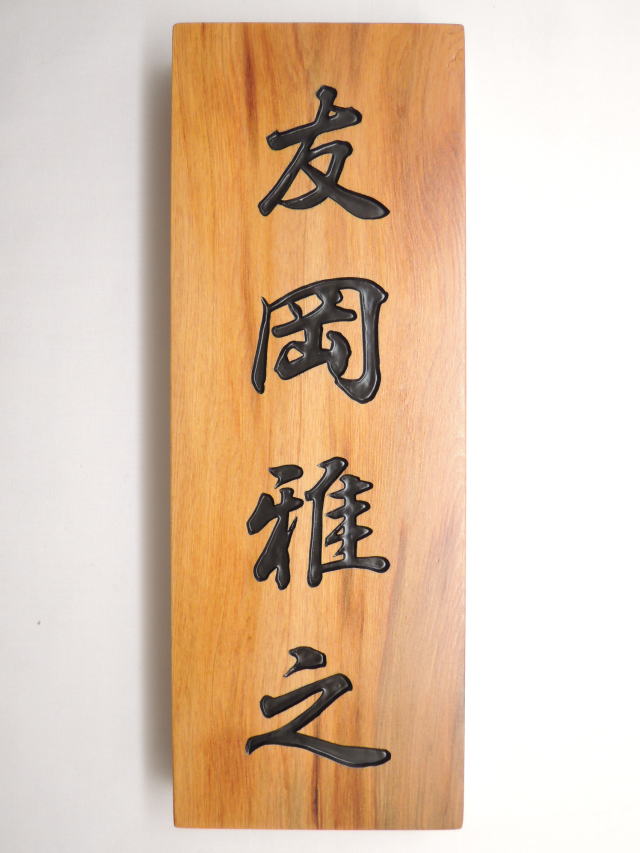 友岡雅之